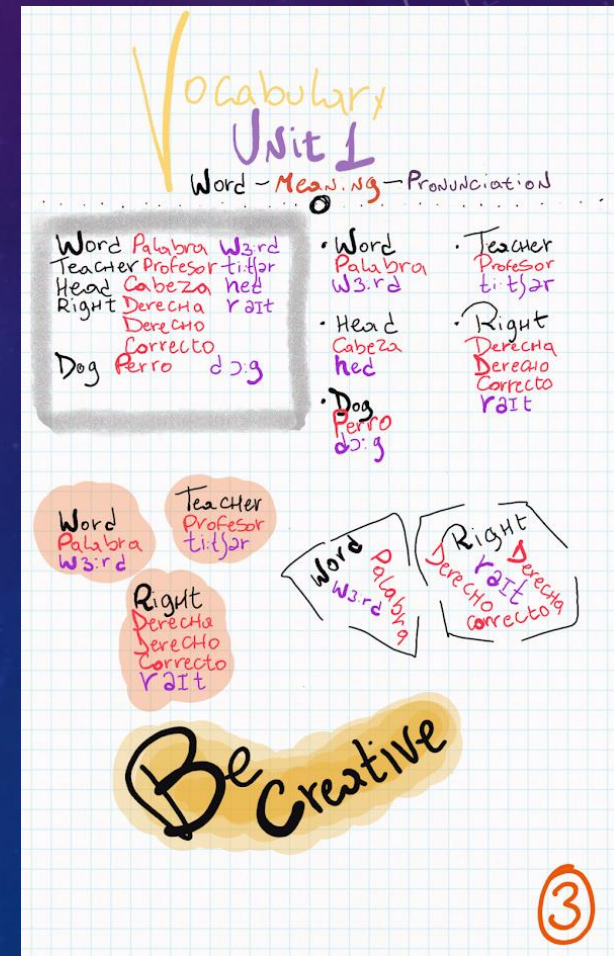 Vocabulary
Unit 1
Word - Meaning - Pronunciation
Word Palabra w3:rd
Teacher Profesor ti:tʃər
Head Cabeza hed
Right Derecha raɪt
Derecho
Correcto
Dog Perro dɔ:g
· Word
Palabra
w3:rd
· Head
Cabeza
hed
· Dog
Perro
dɔ:g
· Teacher
Profesor
ti:tʃər
· Right
Derecha
Derecho
Correcto
raɪt
Word
Palabra
w3:rd
Teacher
Profesor
ti:tʃər
Right
Derecha
Derecho
Correcto
raɪt
Word
Palabra
w3:rd
Right
Derecha
raɪt
Derecho
correcto
Be
Creative
3